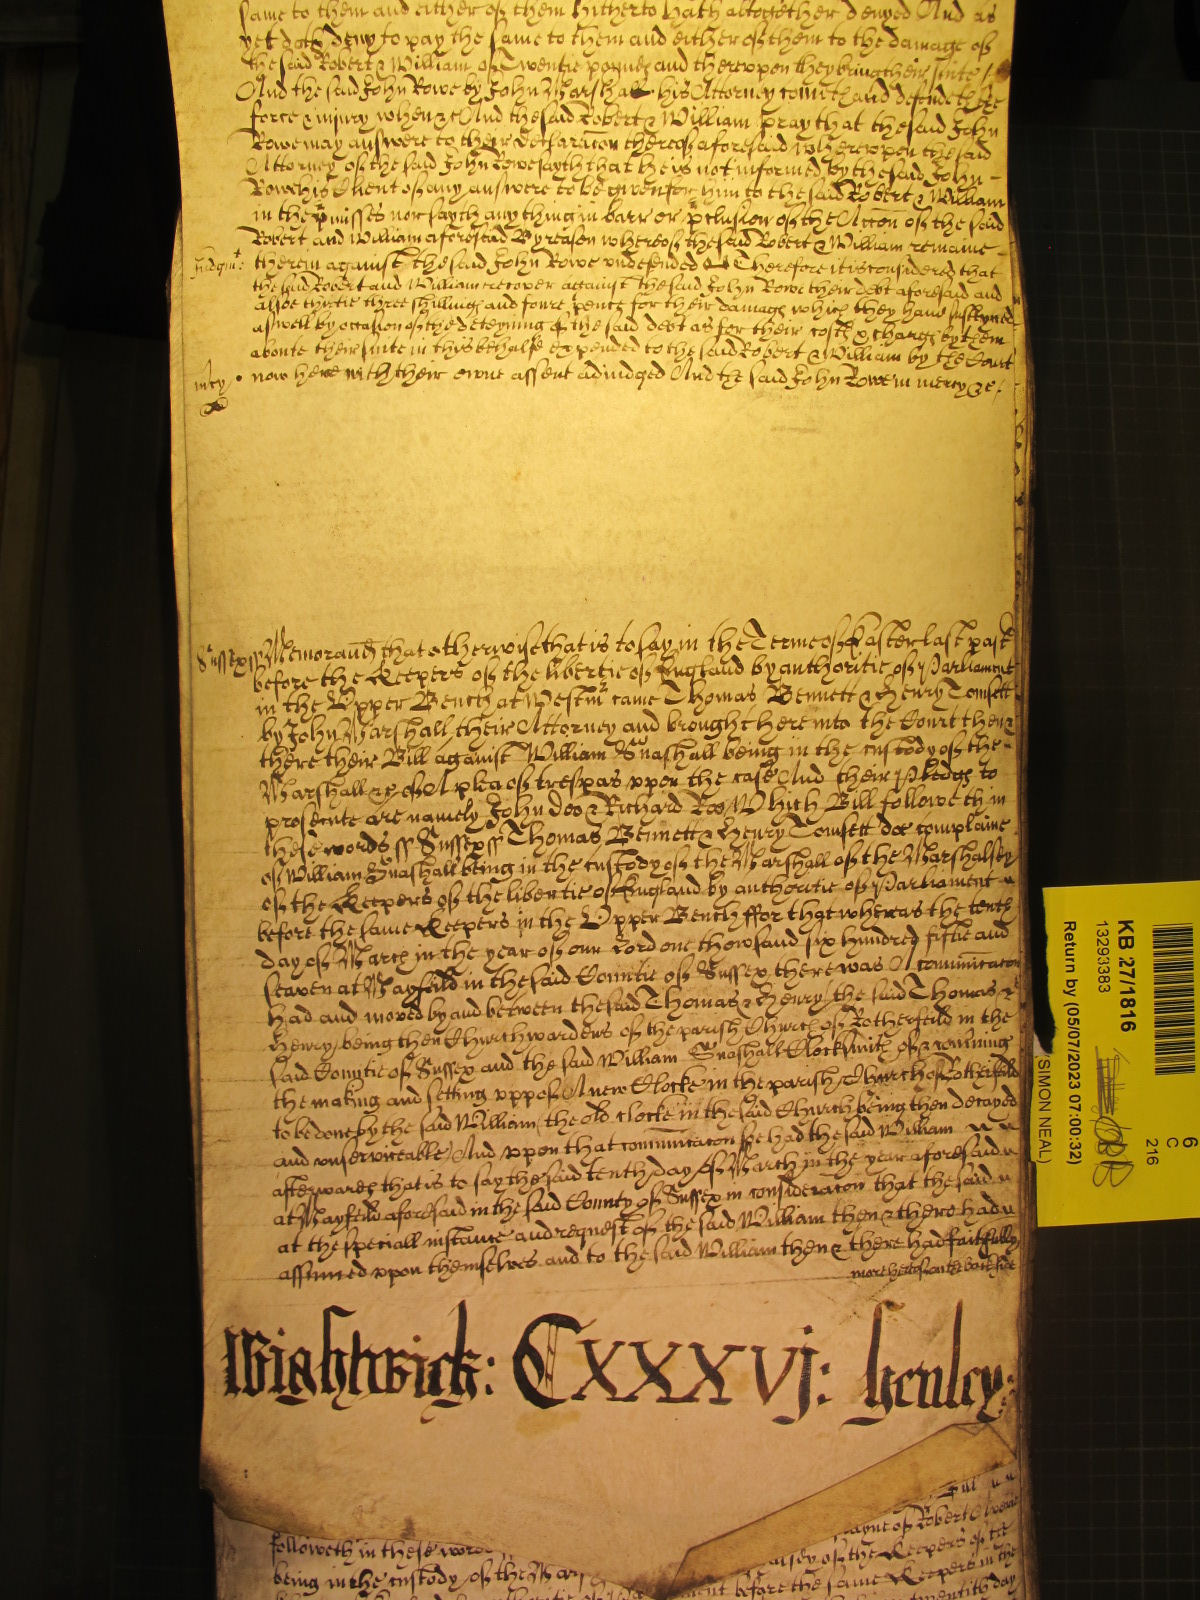 same to them and either of them hitherto hath altogether denyed And as
yet doth deny to pay the same to them and either of them to the damage of
the said Robert & William of Twentie poundes and thereupon they bring their suite /
And the said John Rowe by John Marshall his Attorney cometh and defendeth the
force & iniury when &c And the said Robert & William pray that the said John
Rowe may answere to their declaracon thereof aforesaid Whereupon the said
Attorney of the said John Rowe sayth that he is not informed by the said John
Rowe his Client of any answere to be given for him to the said Robert & William
in the pmisses nor sayth any thing in barr or pclusion of the Accon of the said
Robert and William aforesaid By reason whereof the said Robert & William remaine
Judgmt
therein against the said John Rowe undefended Therefore it is considered that
the said Robert and William recover against the said John Rowe their debt aforesaid and
alsoe thirtie three shillings and foure pence for their damages which they have susteyned
aswell by occasion of the deteyning of the said debt as for their costs & charges by them
aboute their suite in this behalfe expended to the said Robert & William by the Court
mcy
now here with their owne assent adiudged And the said John Rowe in mercy &c /
Sussex ss
Memorand that otherwise that is to say in the Terme of Easter last past
before the Keepers of the libertie of England by authoritie of Parliament
in the Upper Bench at Westmr came Thomas Bennett & Henry Tomsett
by John Marshall their Attorney and brought here into the Court then &
there their Bill against William Snashall being in the custody of the
Marshall &c of A plea of trespas upon the case And their Pledges to
prosecute are namely John Doo & Richard Roo Which Bill followeth in
these words ss Sussex ss Thomas Bennett & Henry Tomsett doe complaine
of William Snashall being in the custody of the Marshall of the Marshalsey
of the Keepers of the libertie of England by authoritie of Parliament
before the same Keepers in the Upper Bench ffor that whereas the tenth
day of March in the year of our Lord one thowsand six hundred fiftie and
seaven at Mayfeild in the said Countie of Sussex there was A communicacon
had and moved by and between the said Thomas & Henry (the said Thomas &
Henry) being then Churchwardens of the parish Church of Rotherfeild in the
said Countie of Sussex and the said William Snashall Clocksmith of & concerning
the making and setting upp of A new Clocke in the parish Church of Rotherfeild
to be done by the said William (the old clocke in the said Church being then decayed
and unserviceable) And upon that communicacon soe had the said William
afterwards that is to say the said tenth day of March in the year aforesaid
at Mayfeild aforesaid in the said County of Sussex in consideracon that the said
at the speciall instance and request of the said William then & there had
assumed upon themselves and to the said William then & there had faithfully
more hereof on the backside
Wightwick: CXXXVJ: henley:
KB 27/1816
13293383
Return by (05/07/2023 07:00:32)
(SIMON NEAL)
6
C
216
followeth in these words
of Robert
being in the custody of the Mar
of the Keepers of the
before the same Keepers in the